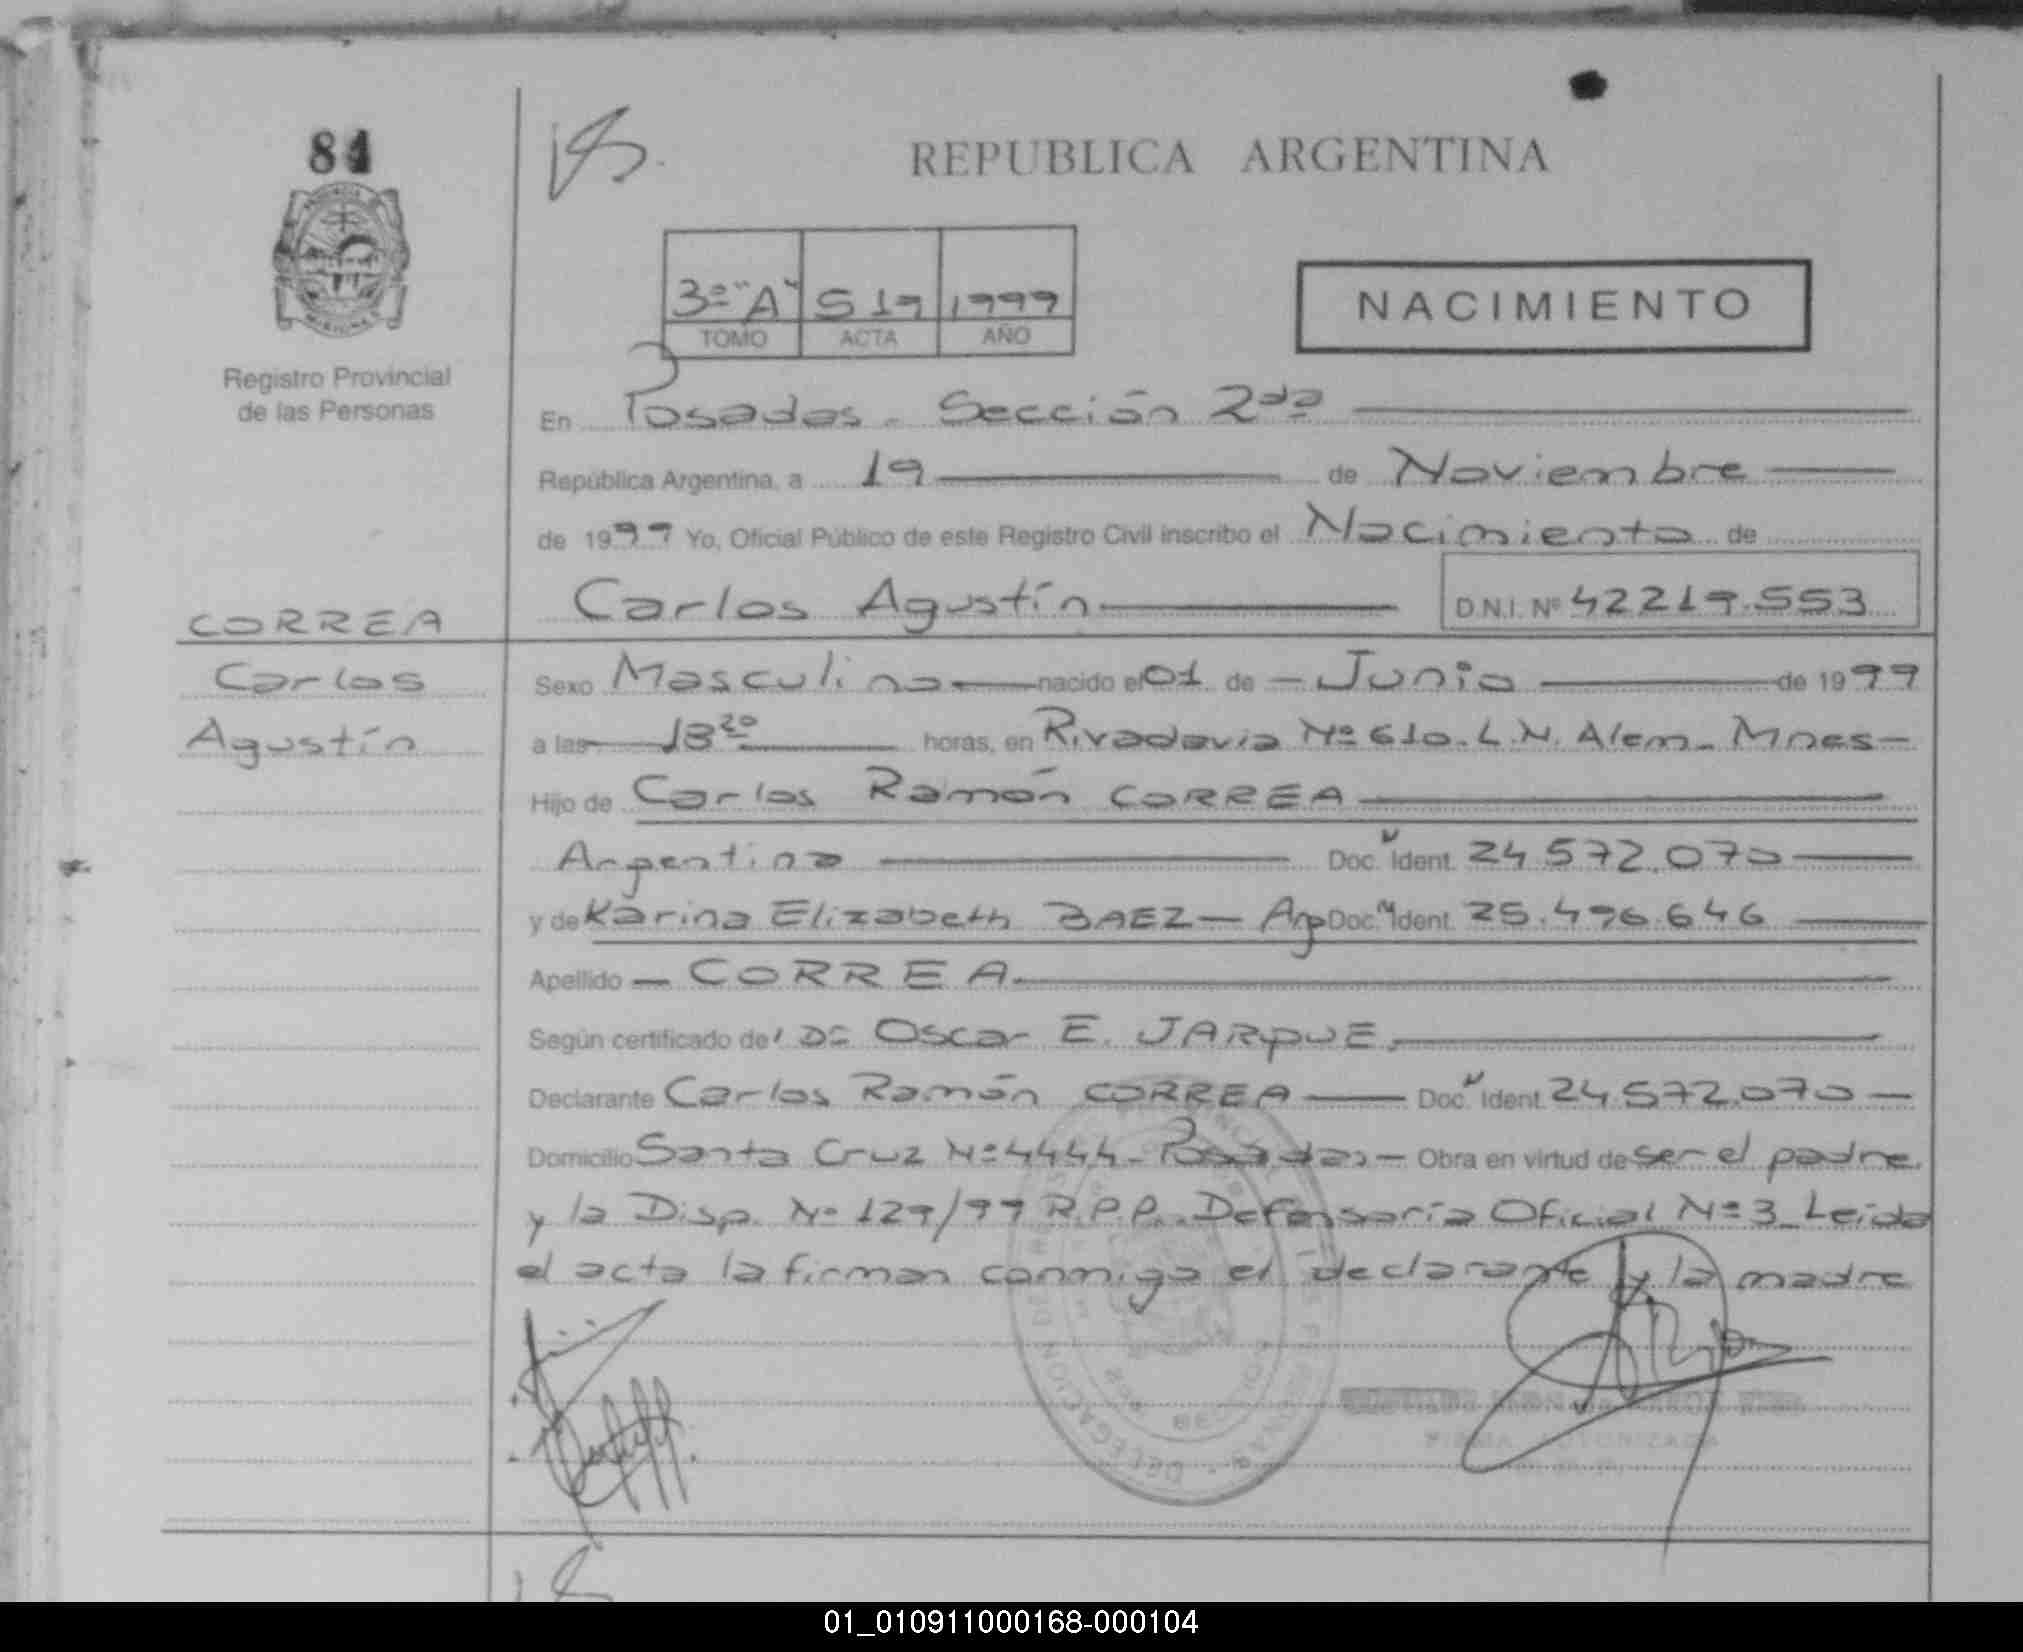 84
REPUBLICA ARGENTINA
3º "A" 519 1999
TOMO ACTA AÑO
NACIMIENTO
Registro Provincial
de las Personas
En Posadas - Sección 2da
República Argentina, a 19 de Noviembre
de 1999 Yo, Oficial Público de este Registro Civil inscribo el Nacimiento de
Carlos Agustín D.N.I. Nº 42219.553
CORREA
Carlos
Agustín
Sexo Masculino nacido el 01 de Junio de 1999
a las 18 20 horas, en Rivadavia Nº 610. L.N. Alem - Mnes -
Hijo de Carlos Ramón CORREA
Argentina Doc. N Ident. 24.572.070
y de Karina Elizabeth BAEZ - Arg Doc. N Ident. 25.496.646
Apellido - CORREA
Según certificado del Dr Oscar E. JARQUE.
Declarante Carlos Ramón CORREA Doc. N Ident. 24.572.070 -
Domicilio Santa Cruz Nº 4444 - Posadas - Obra en virtud de ser el padre
y la Disp. Nº 129/99 R.P.P. Defensoría Oficial Nº 3_ Leida
el acta la firman conmigo el declarante y la madre
FIRMA AUTORIZADA
01_010911000168-000104